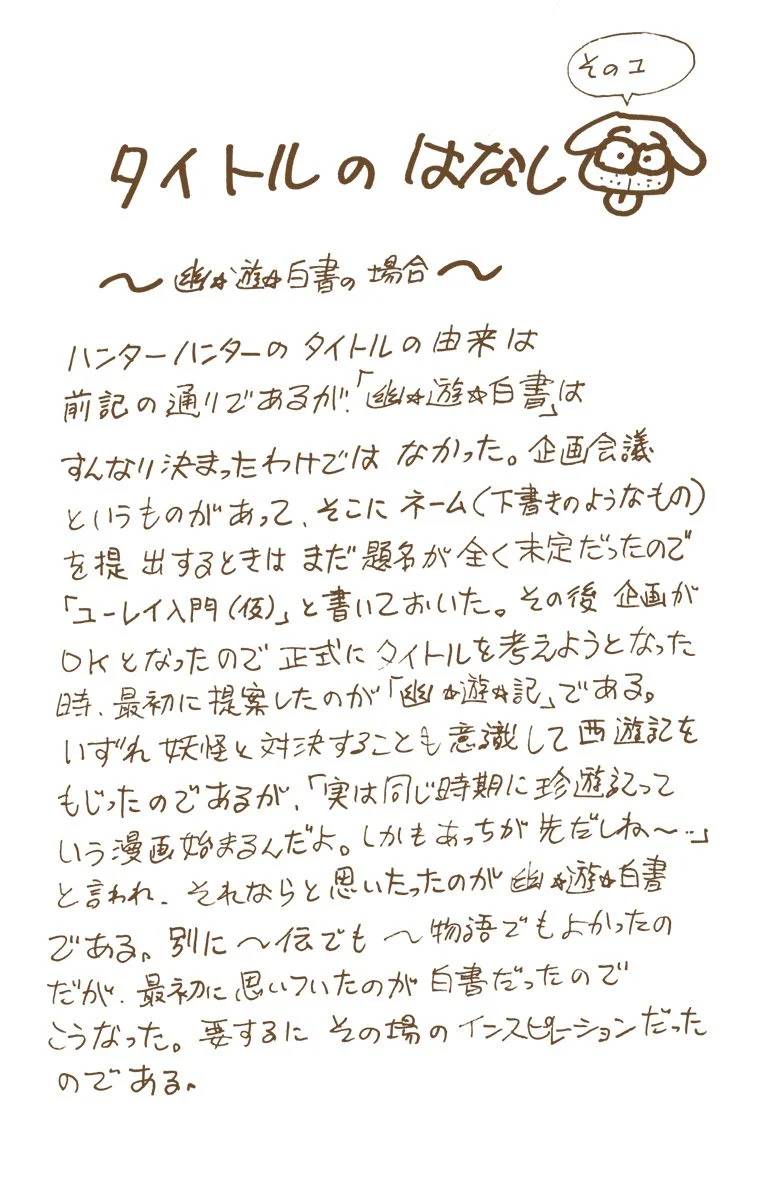 その2
タイトルの はなし
〜幽☆遊☆白書の場合〜
ハンターハンターの タイトルの由来は
前記の通りであるが、「幽☆遊☆白書」は
すんなり決まったわけでは なかった。企画会議
というものがあって、そこに ネーム(下書きのようなもの)
を提出するときは まだ題名が全く未定だったので
「ユーレイ入門(仮)」と書いておいた。その後 企画が
OKとなったので 正式に タイトルを考えようとなった
時、最初に提案したのが「幽☆遊☆記」である。
いずれ妖怪と対決することも意識して西遊記を
もじったのであるが、「実は同じ時期に珍遊記って
いう漫画始まるんだよ。しかもあっちが先だしね〜‥」
と言われ、それならと思いたったのが幽☆遊☆白書
である。別に〜伝でも 〜物語でもよかったの
だが、最初に思いついたのが白書だったので
こうなった。要するに その場のインスピレーションだった
のである。